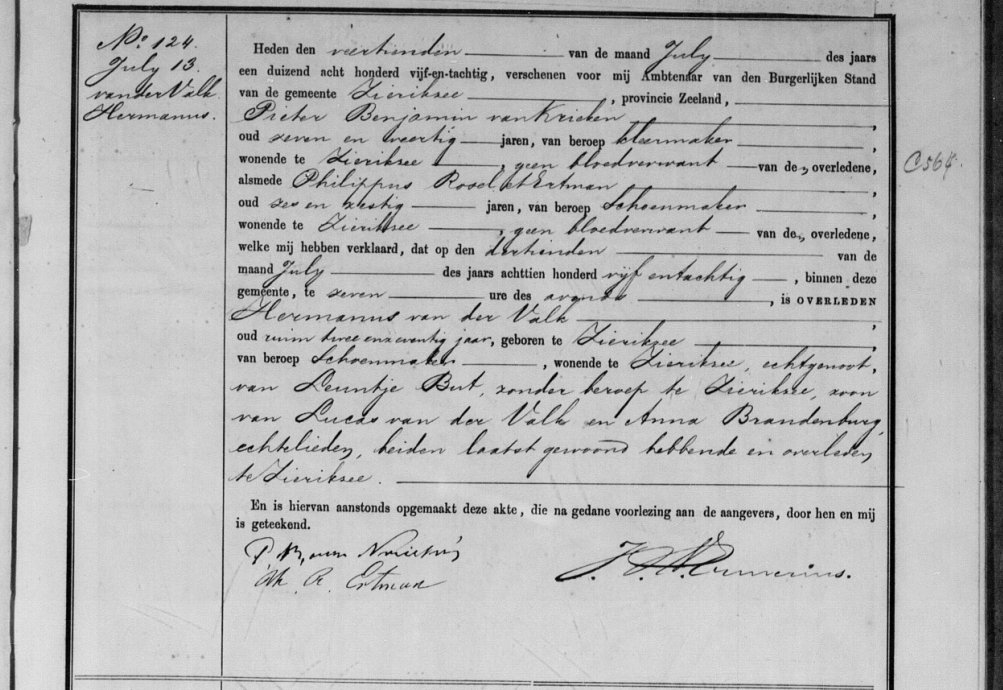 No. 124.
July 13.
van der Valk
Hermanus.
Heden den veertienden van de maand July des jaars
een duizend acht honderd vijf-en-tachtig, verschenen voor mij Ambtenaar van den Burgerlijken Stand
van de gemeente Zieriksee, provincie Zeeland,
Pieter Benjamin van Krieken,
oud seven en veertig jaren, van beroep kleermaker,
wonende te Zieriksee, geen bloedverwant van de overledene,
alsmede Philippus Ertman,
oud ses en sestig jaren, van beroep Schoenmaker,
wonende te Zieriksee, geen bloedverwant van de overledene,
welke mij hebben verklaard, dat op den dertienden van de
maand July des jaars achttien honderd vijf en tachtig, binnen deze
gemeente, te seven ure des avonds, is OVERLEDEN
Hermanus van der Valk,
oud ruim twee en zeventig jaar, geboren te Zieriksee,
van beroep Schoenmaker, wonende te Zieriksee, echtgenoot,
van Leuntje But, zonder beroep te Zieriksee, zoon
van Lucas van der Valk en Anna Brandenburg,
echtelieden, beiden laatst gewoond hebbende en overleden
te Zieriksee.
En is hiervan aanstonds opgemaakt deze akte, die na gedane voorlezing aan de aangevers, door hen en mij
is geteekend.
P. B. van
Ph. R. Ertman
C564.